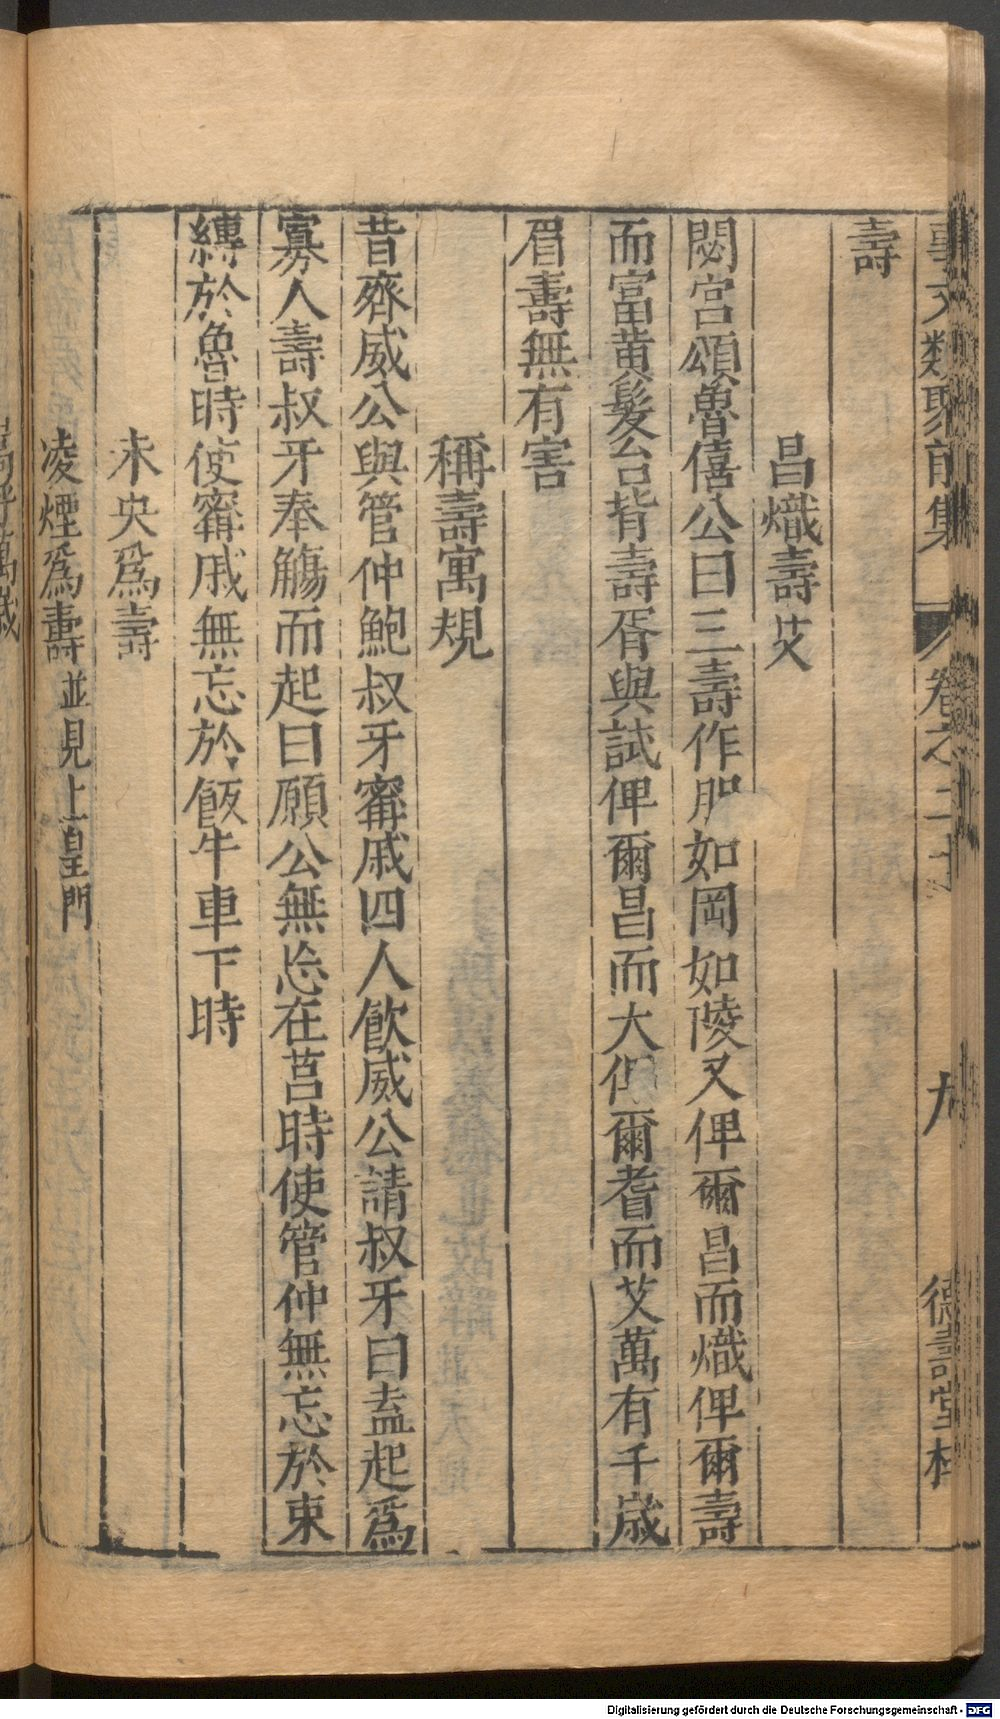 事文類聚前集 卷之二十 九 德壽堂梓
壽
昌熾壽艾
閟宮頌魯僖公曰三壽作朋如岡如陵又俾爾昌而熾俾爾壽
而富黃髮台背壽胥與試俾爾昌而大俾爾耆而艾萬有千歲
眉壽無有害
稱壽寓規
昔齊威公與管仲鮑叔牙甯戚四人飲威公請叔牙曰盍起爲
寡人壽叔牙奉觴而起曰願公無忘在莒時使管仲無忘於束
縛於魯時使甯戚無忘於飯牛車下時
未央爲壽
凌煙爲壽並見上皇門
嵩呼萬歲
Digitalisierung gefördert durch die Deutsche Forschungsgemeinschaft - DFG